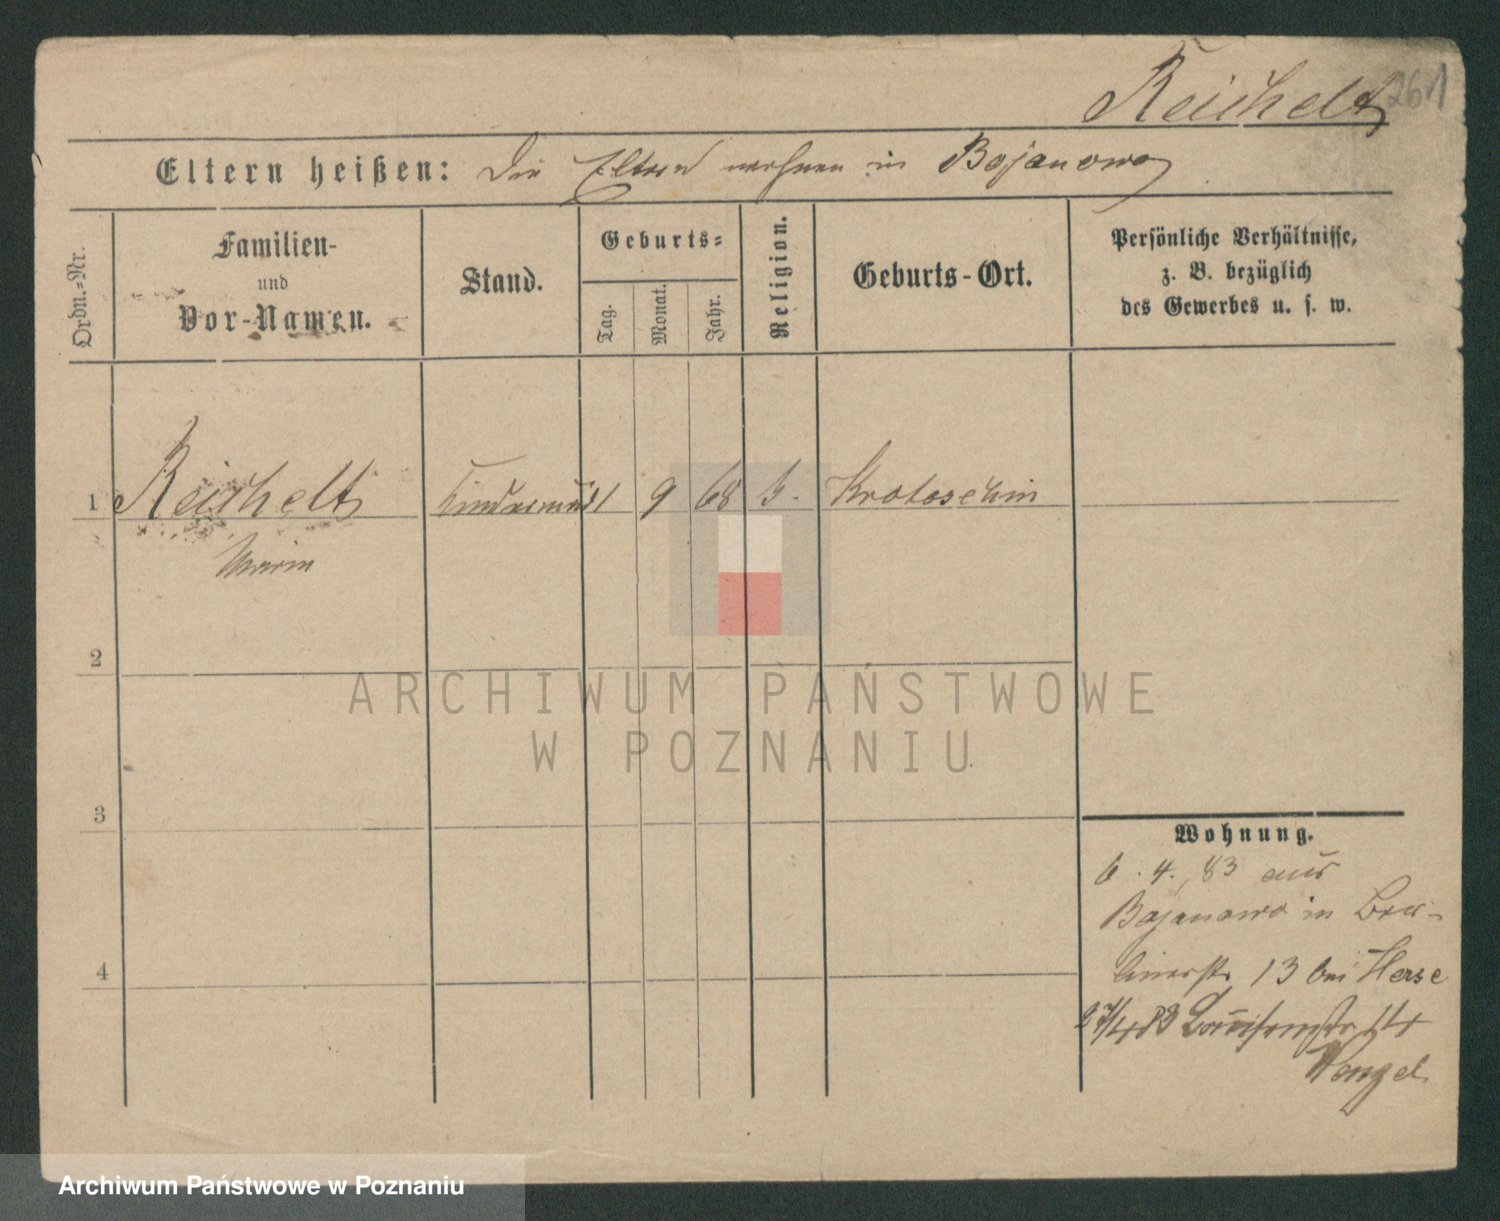 Reichelt 261
Eltern heißen: Die Eltern wohnen in Bojanowo
Ordn.=Nr.
Familien-
und
Vor-Namen.
Stand.
Geburts=
Tag.
Monat.
Jahr.
Religion.
Geburts-Ort.
Persönliche Verhältnisse,
z. B. bezüglich
des Gewerbes u. s. w.
1 Reichelt 9 68 Krotoschin
Marie
2
3
4
ARCHIWUM PAŃSTWOWE
W POZNANIU
Wohnung.
6. 4. 83 aus
Bojanowo in Ber-
linerstr 13 bei Herse
27/4 83 Louisenstr 14
Archiwum Państwowe w Poznaniu